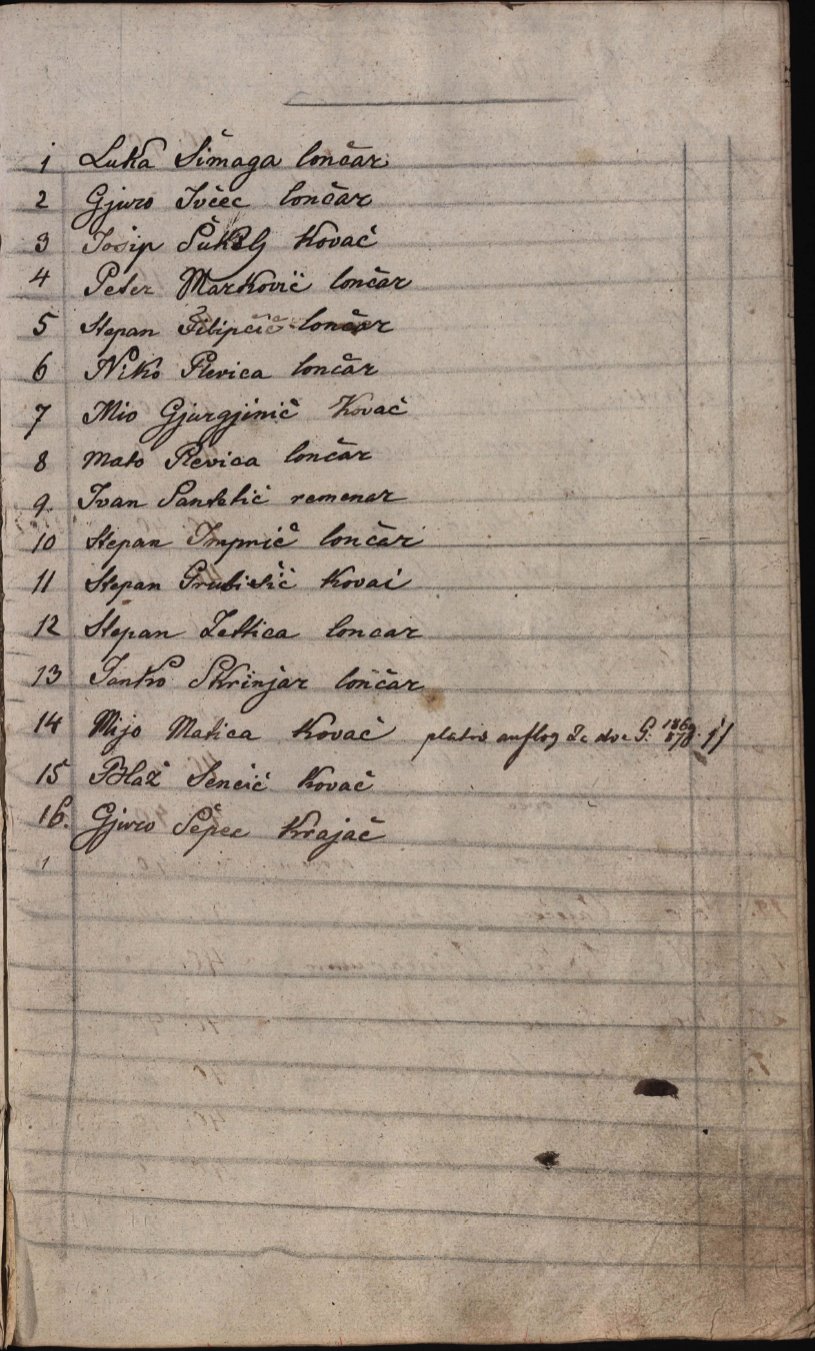 1 Luka Šimaga lončar
2 Gjuro Ivčec lončar
3 Josip Kovač
4 Peter Marković lončar
5 Stepan Filipčić lončar
6 Niko Plevica lončar
7 Mio Gjurgjinič Kovač
8 Mato Plevica lončar
9. Ivan remenar
10 Stepan lončar
11 Stepan Kovač
12 Stepan loncar
13 Janko Skrinjar lončar
14 Mijo Matica Kovač platio auflog
15 Blaž Senčić Kovač
16. Gjuro Šepec Krajač
1